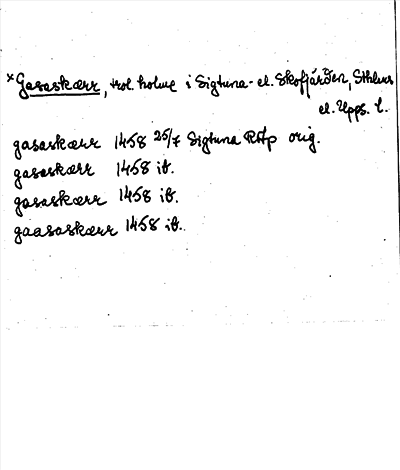 × Gasaskærr, trol. holme i Sigtuna- el. Skofjärden, Sthlms
el. Upps. l.
gasaskærr 1458 25/7 Sigtuna RAp orig.
gasaskærr 1458 ib.
gasaskærr 1458 ib.
gaasaskærr 1458 ib.